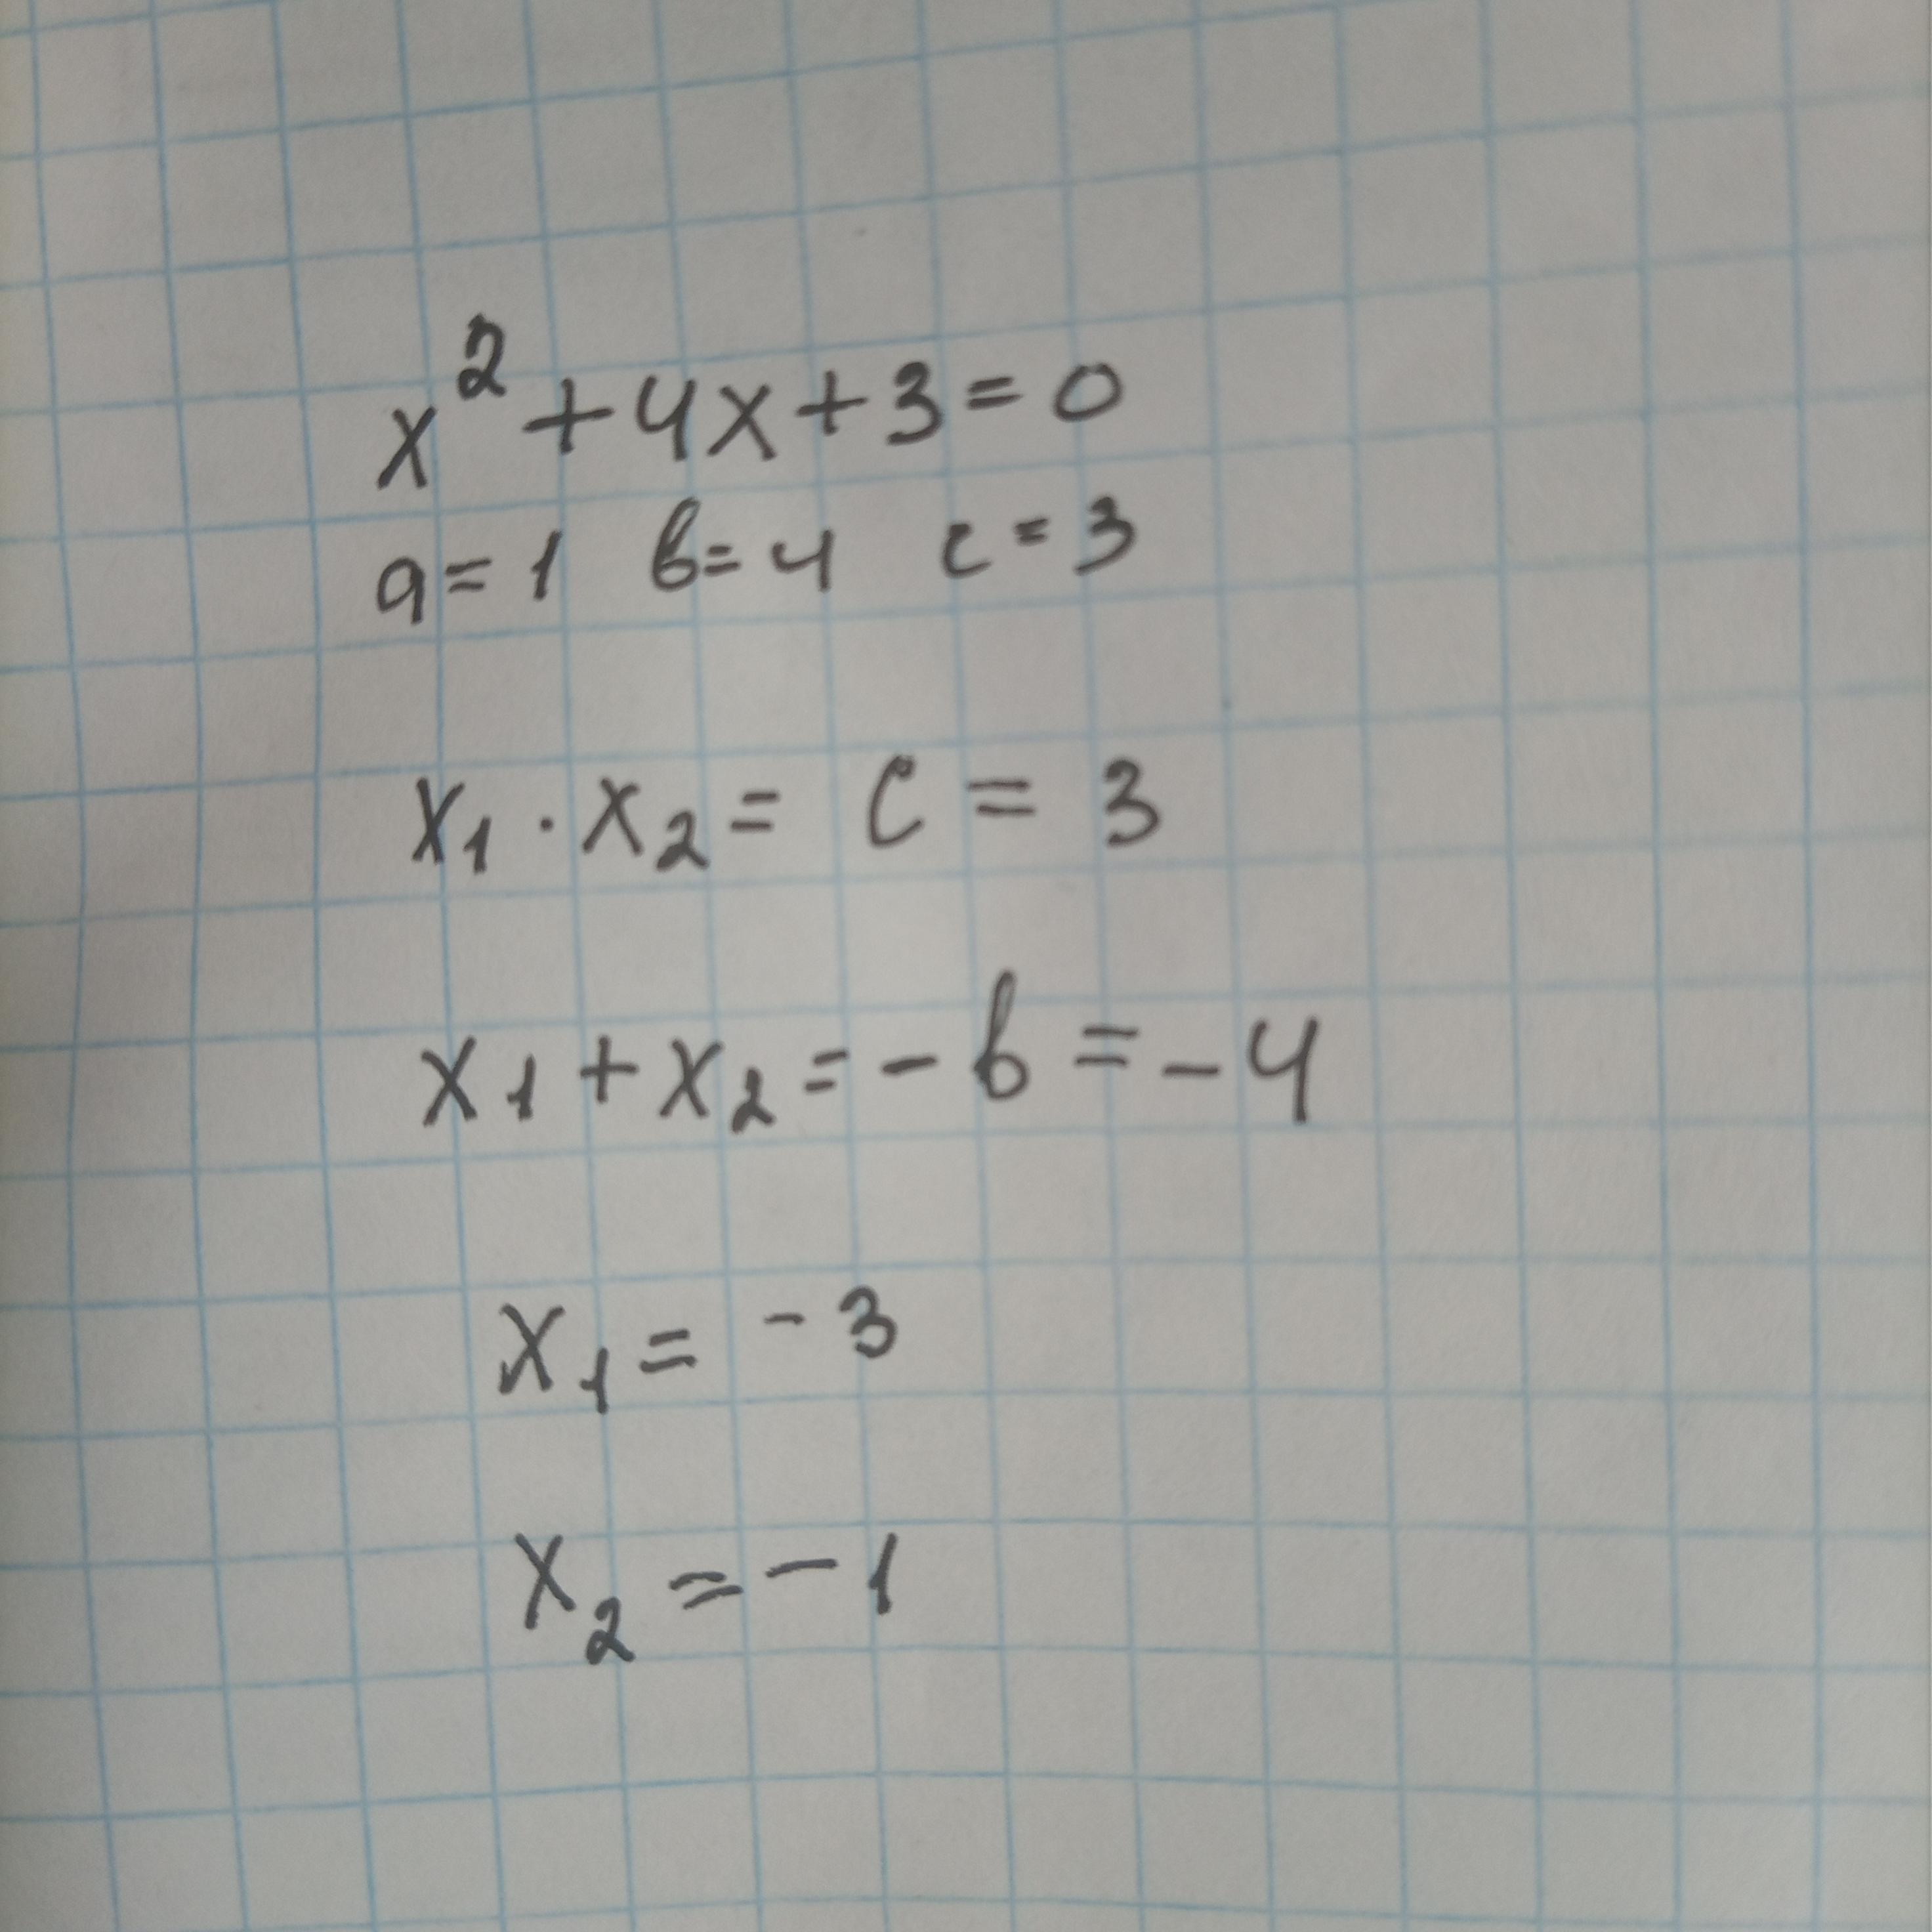 x² + 4x + 3 = 0
a = 1 b = 4 c = 3
x₁ · x₂ = c = 3
x₁ + x₂ = - b = - 4
x₁ = - 3
x₂ = - 1